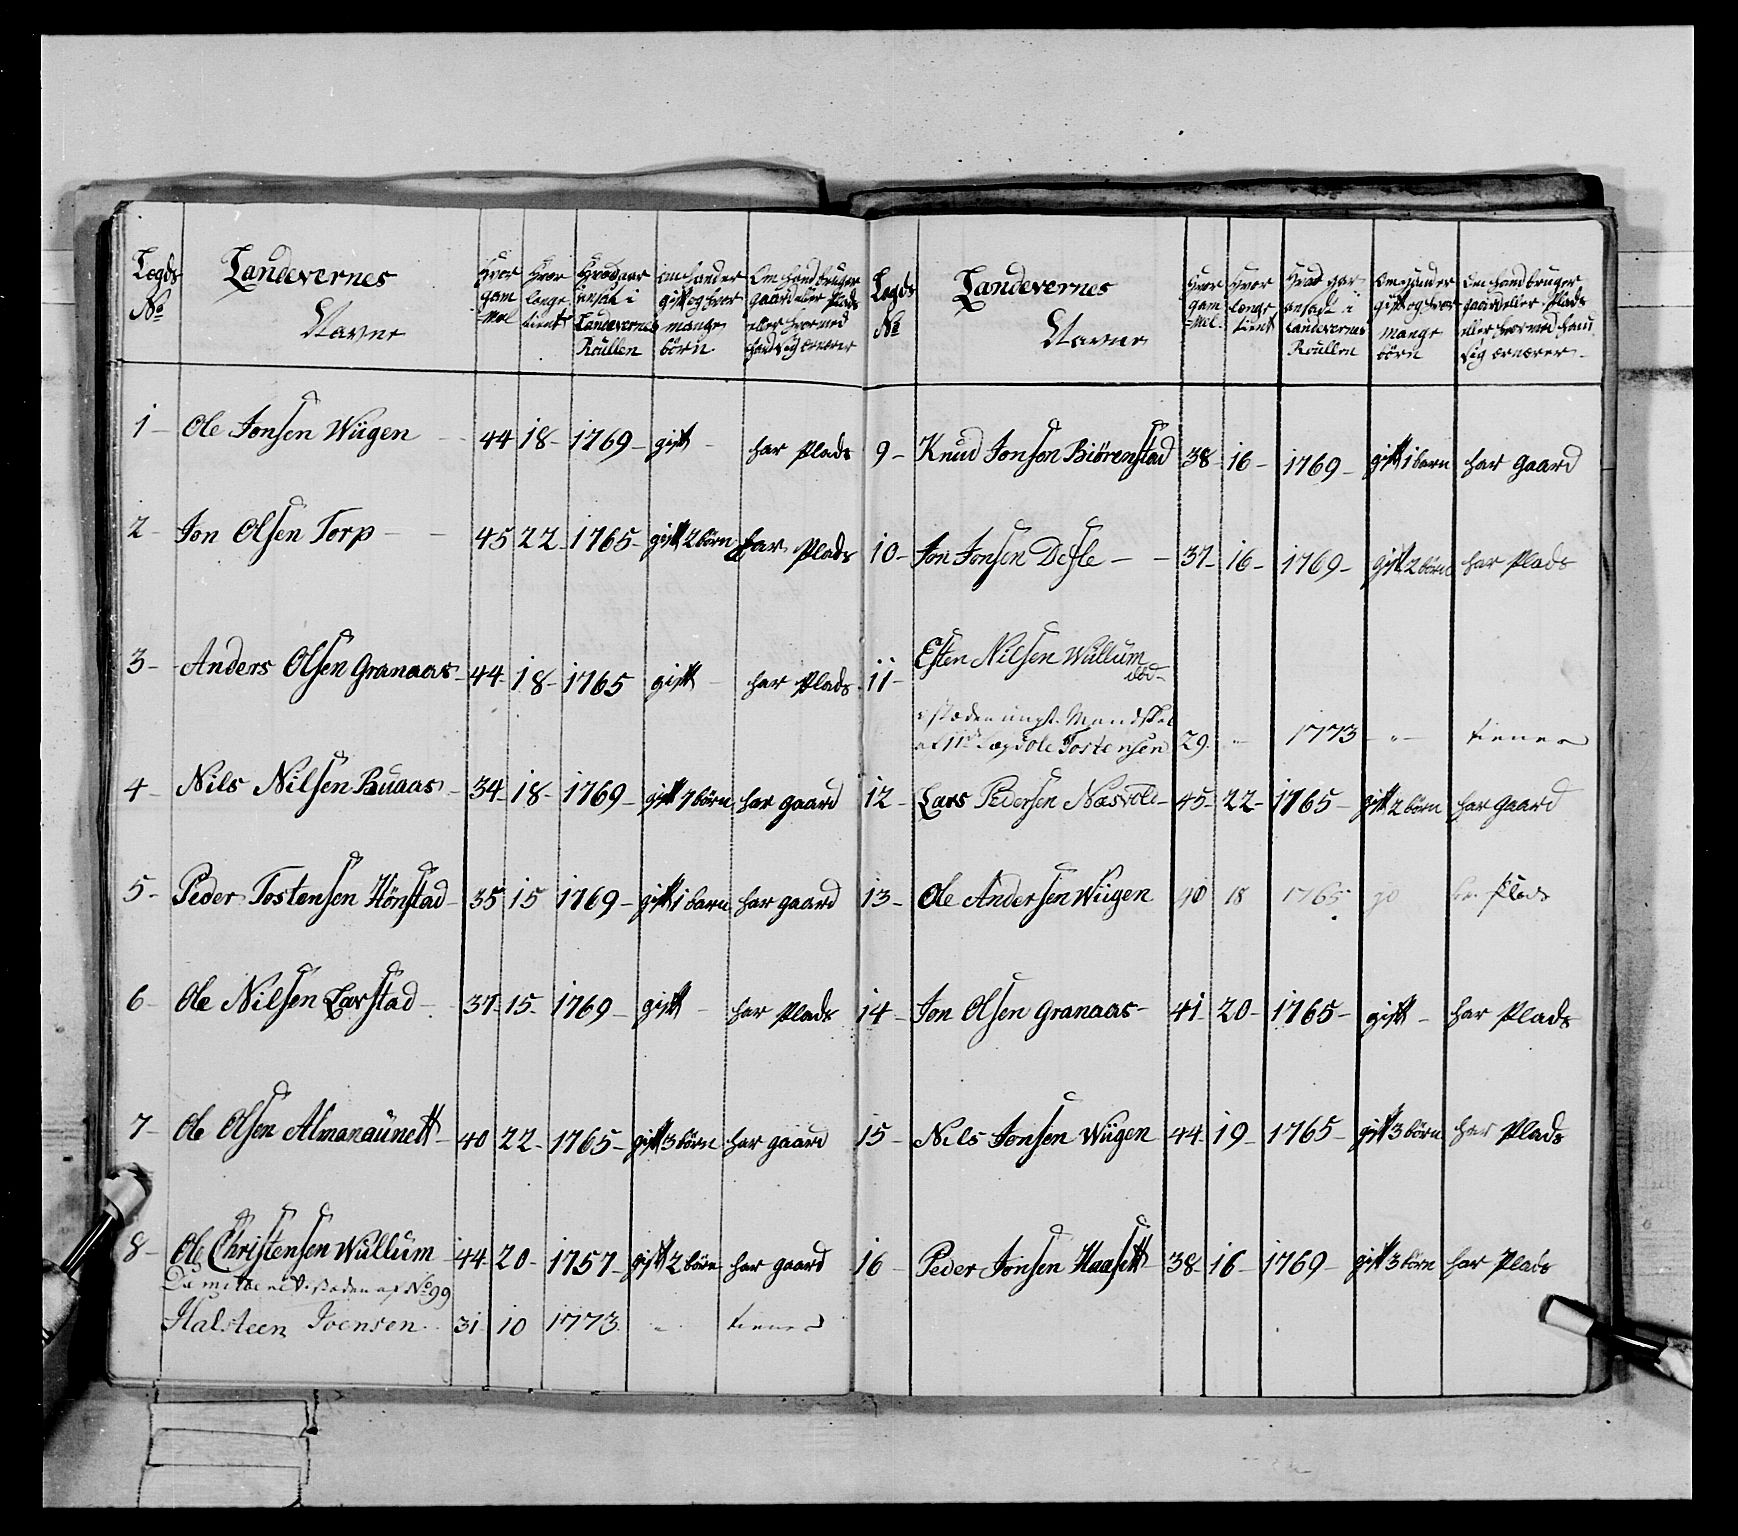 Legds No
Landevernes Navne
Hvor gam -mel
Hvor lenge tient
Hvad aar ansat i Landevernes Roullen
om hand er gift og hvor mange børn
Om hand bruger gaard eller Plads eller hvormed hand sig ernærer
1 - Ole Jonsen Wügen - 44 18 - 1769 - gift - har Plads
2 - Jon Olsen Torp - - 45 22 - 1765 - gift 2 børn har Plads
3 - Anders Olsen Granaas - 44 - 18 - 1765 gift - har Plads
4 - Nils Nilsen Buaas - 34 - 18 - 1769 - gift 7 børn har gaard
5 - Peder Tostensen Hönstad - 35 15 1769 - gift 1 barn har gaard
6 - Ole Nilsen Larstad - 37 - 15 - 1769 - gift - har Plads
7 - Ole Olsen Almanaünett - 40 22 - 1765 - gift 3 børn har gaard
8 - Ole Christensen Wullum 44 - 20 - 1757 - gift 2 børn har gaard
i stæden af No 99
Halsteen Joensen 31 10 1773 - tiener
Legds No
Landevernes Navne
Hvor gam -mel
Hvor lenge tient
Hvad aar ansadt i Landevernes Roullen
om hand er gift og hvor mange børn
Om hand bruger gaard eller Plads eller hvormed hand sig ernærer -
9 - Knud Jonsen Biörenstad 38 16 - 1769 - gift 1 barn har gaard
10 - Jon Jonsen Desle - - 37 - 16 - 1769 - gift 2 børn har Plads
11 - Esten Nilsen Wullum
död -
i stæden ungt Mandskab
af 11te Lægd Ole Tostensen 29 - 1773 - " - tiener
12 - Lars Pedersen Næsvold - 45 - 22 - 1765 - gift 2 børn har gaard
13 - Ole Andersen Wiigen 40 18 1765 do har Plads
14 - Jon Olsen Granaas - 41 20 - 1765 - gift - har Plads
15 - Nils Jonsen Wügen 44 19 - 1765 - gift 3 børn har Plads
16 - Peder Jonsen Haasett 38 - 16 - 1769 - gift 3 børn har Plads